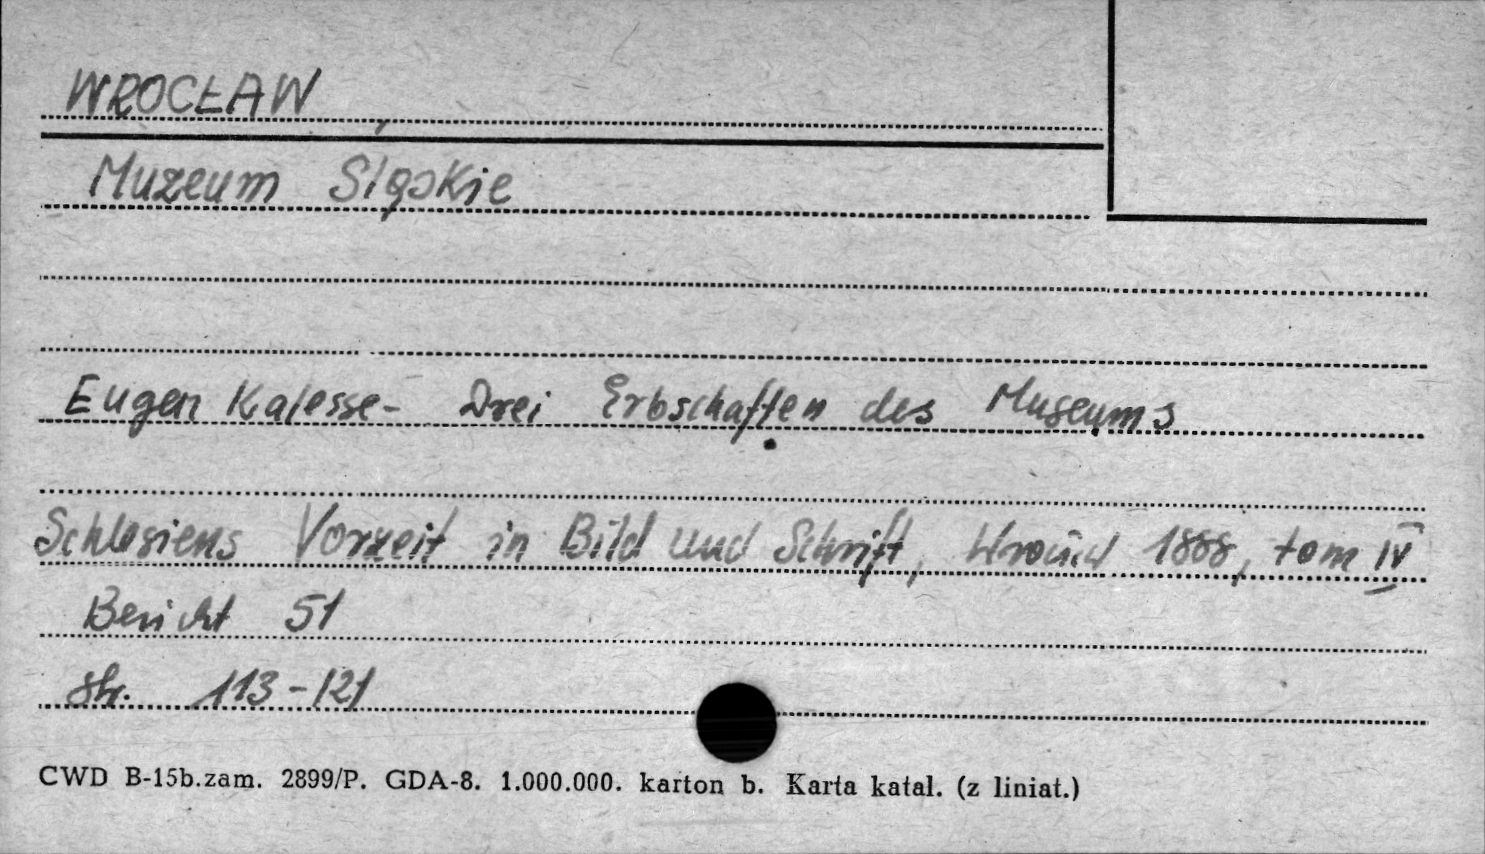 WROCŁAW
Muzeum Śląskie
Eugen Kalesse - Drei Erbschaften des Museums
Schlesiens Vorzeit in Bild und Schrift, 1888, tom IV
Bericht 51
str. 113-121
CWD B-15b.zam. 2899/P. GDA-8. 1.000.000. karton b. Karta katal. (z liniat.)